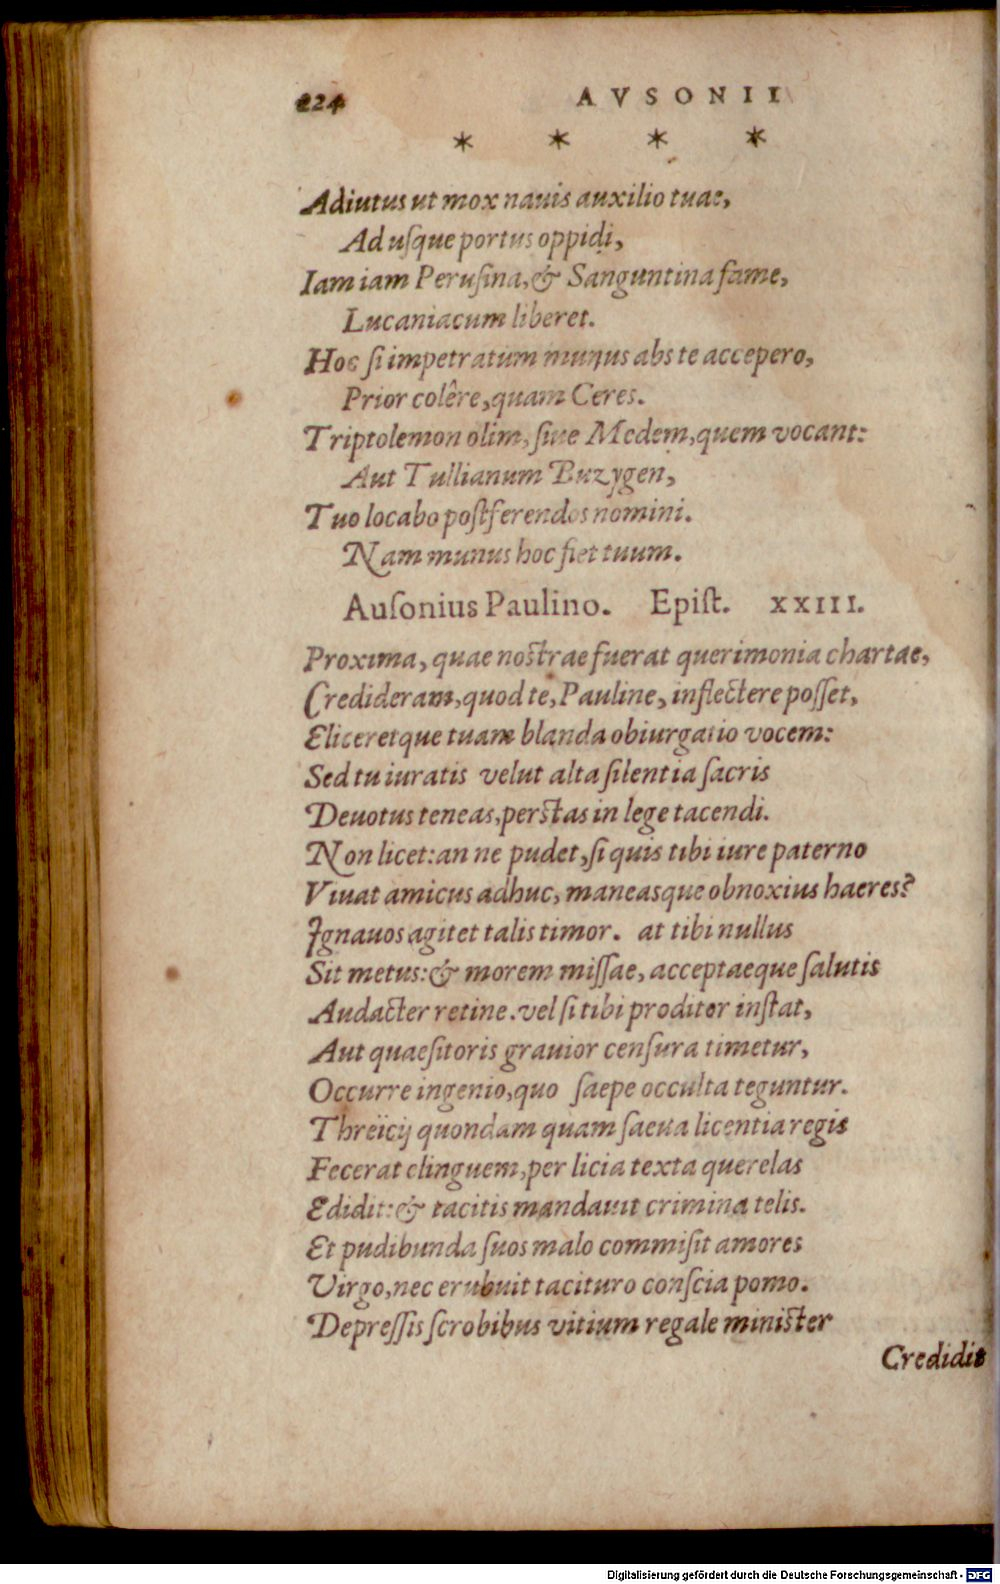 224 AVSONII
* * * *
Adiutus ut mox nauis auxilio tuae,
Ad uſque portus oppidi,
Iam iam Peruſina, & Sanguntina fame,
Lucaniacum liberet.
Hoc ſi impetratum munus abs te accepero,
Prior colêre, quam Ceres.
Triptolemon olim, ſiue Medem, quem vocant:
Aut Tullianum Buzygen,
Tuo locabo poſtferendos nomini.
Nam munus hoc fiet tuum.
Auſonius Paulino. Epiſt. XXIII.
Proxima, quae noſtrae fuerat querimonia chartae,
Credideram, quod te, Pauline, inflectere poſſet,
Eliceretque tuam blanda obiurgatio vocem:
Sed tu iuratis velut alta ſilentia ſacris
Deuotus teneas, perſtas in lege tacendi.
Non licet: an ne pudet, ſi quis tibi iure paterno
Viuat amicus adhuc, maneasque obnoxius haeres?
Ignauos agitet talis timor. at tibi nullus
Sit metus: & morem miſſae, acceptaeque ſalutis
Audacter retine. vel ſi tibi proditor inſtat,
Aut quaeſitoris grauior cenſura timetur,
Occurre ingenio, quo ſaepe occulta teguntur.
Threïcij quondam quam ſaeua licentia regis
Fecerat elinguem, per licia texta querelas
Edidit: & tacitis mandauit crimina telis.
Et pudibunda ſuos malo commiſit amores
Virgo, nec erubuit tacituro conſcia pomo.
Depreſſis ſcrobibus vitium regale miniſter
Credidit
Digitalisierung gefördert durch die Deutsche Forschungsgemeinschaft - DFG